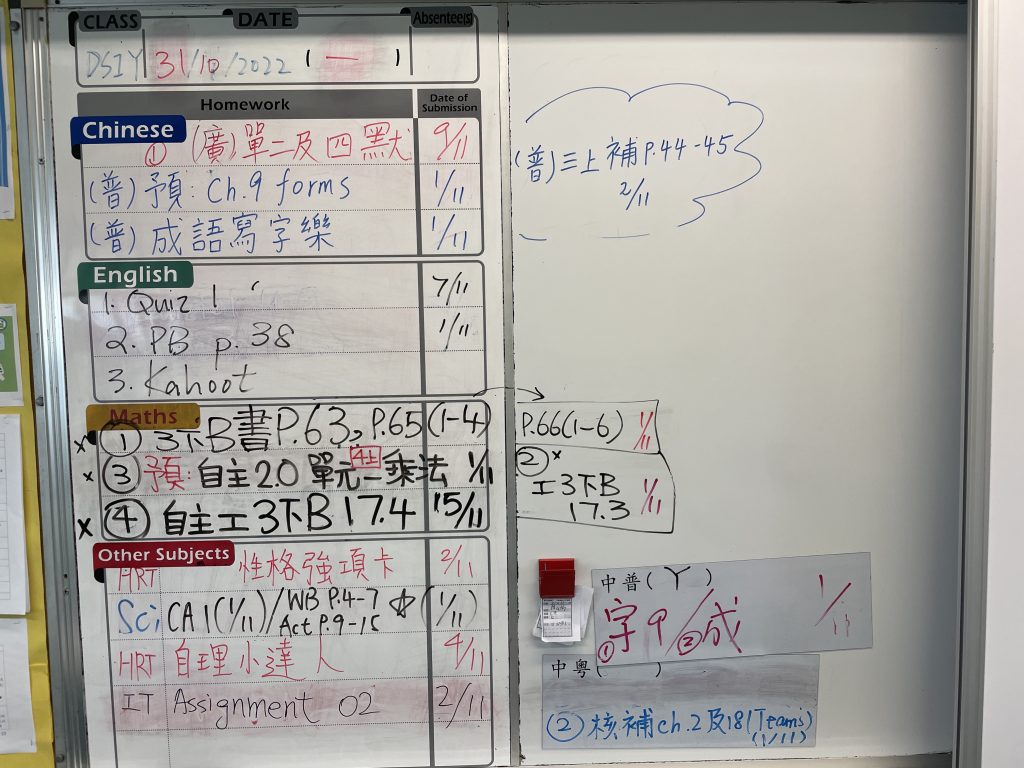 CLASS DATE Absentee(s)
DSIY 31/10/2022 (一)
Homework Date of Submission
Chinese
① (廣)單二及四默 9/11
(普)預: Ch.9 forms 1/11
(普)成語寫字樂 1/11
English
1. Quiz 1 7/11
2. PB p. 38 1/11
3. Kahoot
Maths
x ① 3下B書P.63, P.65(1-4)
x ③ 預: 自主2.0 4上 單元一乘法 1/11
x ④ 自主工3下B 17.4 15/11
Other Subjects
HRT 性格強項卡 2/11
Sci CA1(1/11)/WB P.4-7 ☆(1/11)
Act P.9-10
HRT 自理小達人 4/11
IT Assignment 02 2/11
(普)三上補P.44-45
2/11
P.66(1-6) 1/11
② x
工3下B 1/11
17.3
中普(Y)
①字9/②成 1/11
中粵( )
② 核補ch.2及18(Teams)
(1/11)